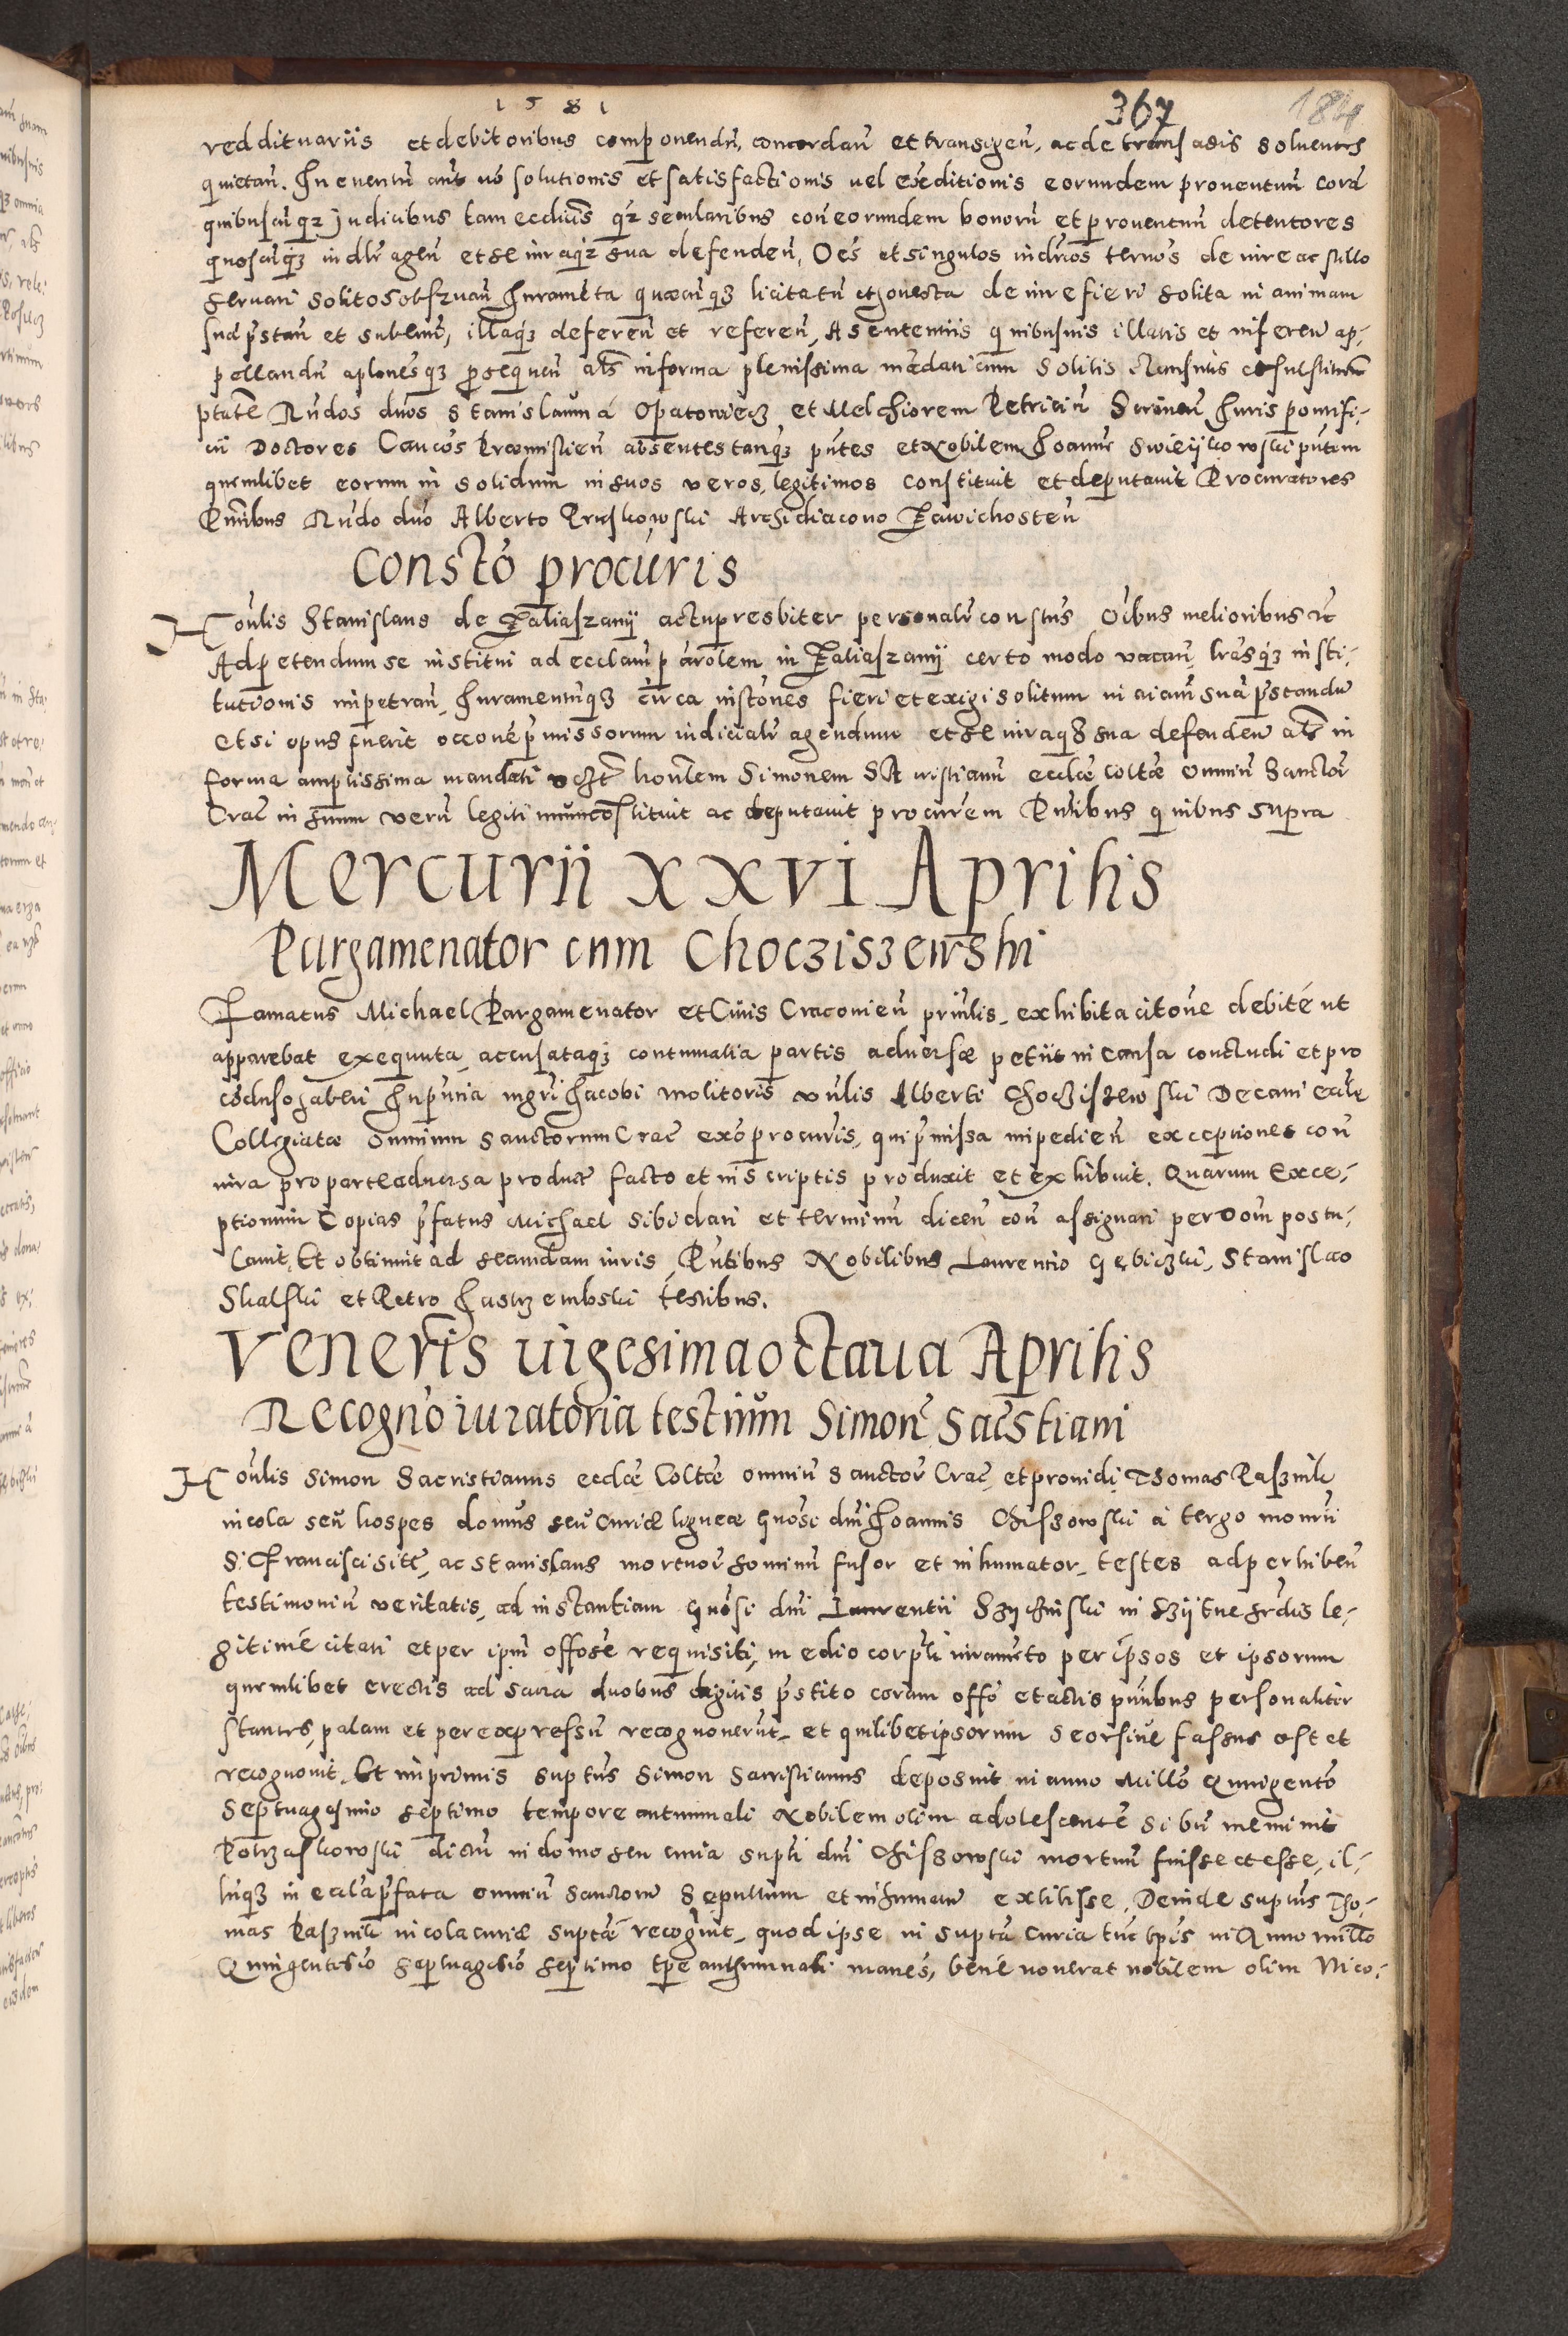 1581
367
184
reddituariis et debitoribus componendum, concordan̄ et transigen̄, ac de transactis soluentes
quietan̄. In euentum aut no solutionis et satisfactionis uel expeditionis eorundem prouentuum corā
quibuscunqz Judicibus tam eccl̄icis qz secularibus con̄ eorundem bonorū et prouentuum detentores
quoscūqz iudilr agen̄ et se iuraqz sua defenden̄, Oēs et singulos iudirios ternōs de iure ac stillo
seruari solitos obseruan̄ Iuramēta quæcūqz licita tn̄ et honesta de iure fieri solita in animam
suā p̄stan̄ et subeun̄, illaqz deferen̄ et referen̄, A sententiis quibusuis illatis et inferen̄ ap-
pellandū aplonesqz prosequen̄ als in forma plenissima mādati cum solitis clausulis et substituen̄
ptāte Rn̄dos dn̄os Stanislaum á Opatowiecz et Melchiorem Petriciū Iuris pontifi-
cii Doctores Can̄cos Præmislien̄ absentes tanqz pn̄tes et Nobilem Joannē pn̄tem
quemlibet eorum in solidum in suos veros, legitimos constituit et deputauit Procuratores
Pn̄tibus Rn̄do dn̄o Alberto Archidiacono Zawichosten̄
Constō procūris
Hon̄lis Stanislaus de Zaliaszanij actu presbiter personalr constūs Oībus melioribus etc̄
Ad petendum se institui ad ecclam̄ parōlem in Zaliaszanij certo modo vacan̄, lrāsqz insti-
tutionis impetran̄, Iuramentūqz circa instones fieri et exigi solitum in aīam suā p̄standū
et si opus fuerit occone p̄missorum iudicialr agendum et se iuraqz sua defenden̄ als in
forma amplissima mandati hon̄lem Simonem Sacristianū ecclæ collæ omniū Sanctor̄
Crac̄ in suum verū legitimum constituit ac deputauit procurem Pn̄tibus quibus supra
Mercurii XXVI Aprilis
Pargamenator cum Choczissewski
Famatus Michael Pargamenator et Ciuis Cracouien̄ prin̄lis, exhibita citone debité ut
apparebat exequuta, accusataqz contumatia partis aduersæ petiit in causa concludi et pro
cōclusō haberi In pn̄tia mgri Jacobi Molitoris vn̄lis Alberti Choczissewski Decani eccl̄e
Collegiatæ omnium sanctorum Crac̄ exō procuris, qui p̄missa impedien̄ exceptiones con̄
iura pro parte aduersa product facto et in scriptis produxit et exhibuit. Quarum Exce-
ptionum Copias p̄fatus Michael sibi dari et terminū dicen̄ con̄ assignari per Dom̄ postu-
lauit, Et obtinuit ad secundam iuris, Pn̄tibus Nobilibus Laurentio Gębiczki, Stanislao
Skalski et Petro Jastrzembski testibus.
Veneris uigesima octaua Aprilis
Recogn̄o iuratoria testiūm Simonē Sacstiani
Hon̄lis Simon Sacristianus ecclæ Collæ omniū sanctor̄ Crac̄, et prouidi Thomas Pasznik
incola seū hospes domus seū Curiæ ligneæ Gn̄osi dn̄i Joannis Chissowski á tergo monr̄ii
S. Francisci site, ac Stanislaus mortuor̄ hominū fusor et inhumator, testes ad perhiben̄
testimoniū veritatis, ad instantiam Gn̄osi dn̄i Laurentii in le-
gitimé citati et per ipm̄ offose requisiti, medio corpr̄li iuramēto per ipsos et ipsorum
quemlibet erectis ad sacra duobus digitis p̄stito coram offo et actis pn̄tibus personaliter
stantes, palam et per expressum recognouerūt, et quilibet ipsorum seorsiue fassus est et
recognouit. Et imprimis suptūs Simon Sacristianus deposuit in anno Millo Quingento
Septuagesimo septimo tempore autumnali Nobilem olim adolescentē sibi meminit
Potrzaskowski dictū in domo seu curia supti dn̄i Chissowski mortuū fuisse et esse, il-
lūqz in eccl̄a p̄fata omniū Sanctorū sepultum et inhumatū extitisse. Deinde suptūs Tho-
mas Pasznik incola curiæ suptæ recognuit, quod ipse in supta Curia tūc tp̄is in Anno millo
Quingentesīo septuagesīo septimo tp̄e authumnali manēs, bené nouerat nobilem olim Nico-